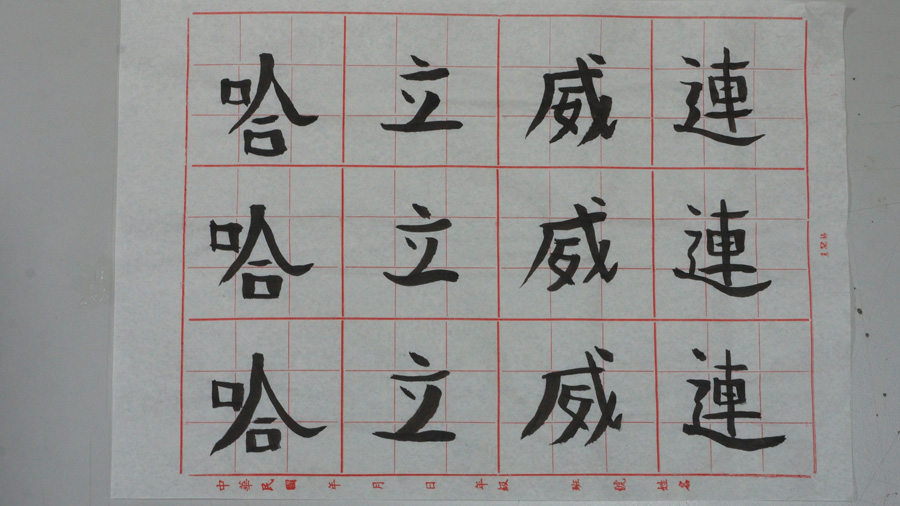 哈立威連
哈立威連
哈立威連
中華民國 年 月 日 年級 班 號 姓名